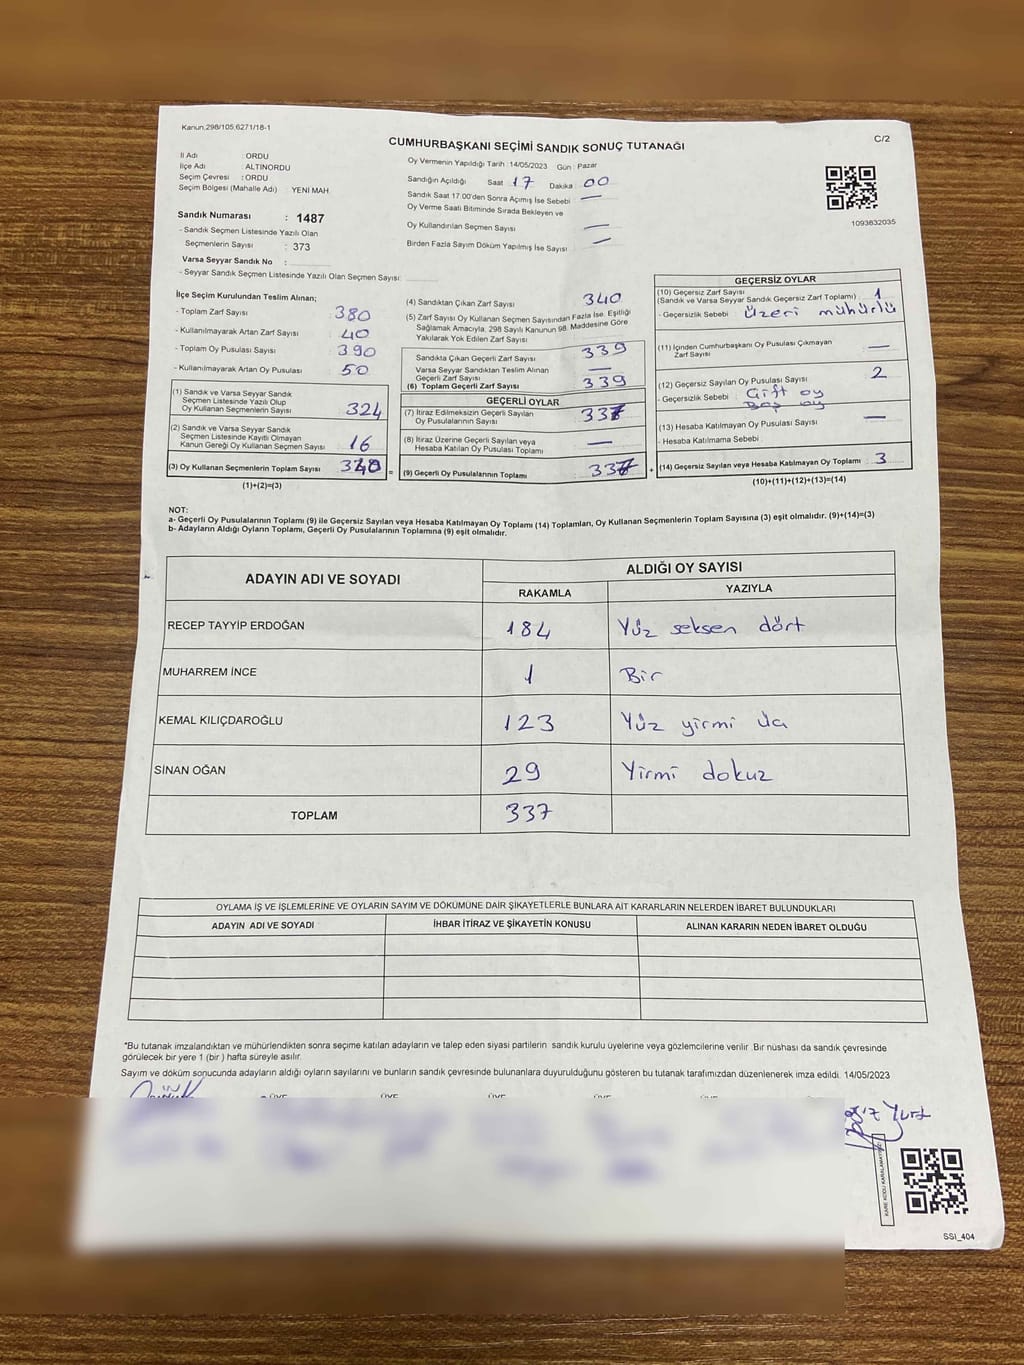 Kanun:298/105;6271/18-1
C/2
CUMHURBAŞKANI SEÇİMİ SANDIK SONUÇ TUTANAĞI
İl Adı : ORDU
İlçe Adı : ALTINORDU
Seçim Çevresi : ORDU
Seçim Bölgesi (Mahalle Adı) : YENİ MAH.
Sandık Numarası : 1487
- Sandık Seçmen Listesinde Yazılı Olan
Seçmenlerin Sayısı : 373
Varsa Seyyar Sandık No :
- Seyyar Sandık Seçmen Listesinde Yazılı Olan Seçmen Sayısı:
Oy Vermenin Yapıldığı Tarih : 14/05/2023 Gün : Pazar
Sandığın Açıldığı Saat 17 Dakika 00
Sandık Saat 17.00'den Sonra Açımış İse Sebebi : —
Oy Verme Saati Bitiminde Sırada Bekleyen ve
Oy Kullandırılan Seçmen Sayısı —
Birden Fazla Sayım Döküm Yapılmış İse Sayısı —
1093632035
İlçe Seçim Kurulundan Teslim Alınan;
- Toplam Zarf Sayısı 380
- Kullanılmayarak Artan Zarf Sayısı 40
- Toplam Oy Pusulası Sayısı 390
- Kullanılmayarak Artan Oy Pusulası 50
(1) Sandık ve Varsa Seyyar Sandık
Seçmen Listesinde Yazılı Olup
Oy Kullanan Seçmenlerin Sayısı 324
(2) Sandık ve Varsa Seyyar Sandık
Seçmen Listesinde Kayıtlı Olmayan
Kanun Gereği Oy Kullanan Seçmen Sayısı 16
(3) Oy Kullanan Seçmenlerin Toplam Sayısı 340 =
(1)+(2)=(3)
(4) Sandıktan Çıkan Zarf Sayısı 340
(5) Zarf Sayısı Oy Kullanan Seçmen Sayısından Fazla İse, Eşitliği
Sağlamak Amacıyla, 298 Sayılı Kanunun 98. Maddesine Göre
Yakılarak Yok Edilen Zarf Sayısı
Sandıkta Çıkan Geçerli Zarf Sayısı 339
Varsa Seyyar Sandıktan Teslim Alınan
Geçerli Zarf Sayısı —
(6) Toplam Geçerli Zarf Sayısı 339
GEÇERLİ OYLAR
(7) İtiraz Edilmeksizin Geçerli Sayılan
Oy Pusulasının Sayısı 337
(8) İtiraz Üzerine Geçerli Sayılan veya
Hesaba Katılan Oy Pusulası Toplamı —
(9) Geçerli Oy Pusulalarının Toplamı 337 +
GEÇERSİZ OYLAR
(10) Geçersiz Zarf Sayısı
(Sandık ve Varsa Seyyar Sandık Geçersiz Zarf Toplamı) 1
- Geçersizlik Sebebi Üzeri mühürlü
(11) İçinden Cumhurbaşkanı Oy Pusulası Çıkmayan
Zarf Sayısı —
(12) Geçersiz Sayılan Oy Pusulası Sayısı 2
- Geçersizlik Sebebi : Çift oy
Boş oy
(13) Hesaba Katılmayan Oy Pusulası Sayısı —
- Hesaba Katılmama Sebebi
(14) Geçersiz Sayılan veya Hesaba Katılmayan Oy Toplamı 3
(10)+(11)+(12)+(13)=(14)
NOT:
a- Geçerli Oy Pusulalarının Toplamı (9) ile Geçersiz Sayılan veya Hesaba Katılmayan Oy Toplamı (14) Toplamları, Oy Kullanan Seçmenlerin Toplam Sayısına (3) eşit olmalıdır. (9)+(14)=(3)
b- Adayların Aldığı Oyların Toplamı, Geçerli Oy Pusulalarının Toplamına (9) eşit olmalıdır.
ADAYIN ADI VE SOYADI
ALDIĞI OY SAYISI
RAKAMLA YAZIYLA
RECEP TAYYİP ERDOĞAN 184 Yüz seksen dört
MUHARREM İNCE 1 Bir
KEMAL KILIÇDAROĞLU 123 Yüz yirmi üç
SİNAN OĞAN 29 Yirmi dokuz
TOPLAM 337
OYLAMA İŞ VE İŞLEMLERİNE VE OYLARIN SAYIM VE DÖKÜMÜNE DAİR ŞİKAYETLERLE BUNLARA AİT KARARLARIN NELERDEN İBARET BULUNDUKLARI
ADAYIN ADI VE SOYADI İHBAR İTİRAZ VE ŞİKAYETİN KONUSU ALINAN KARARIN NEDEN İBARET OLDUĞU
"Bu tutanak imzalandıktan ve mühürlendikten sonra seçime katılan adayların ve talep eden siyasi partilerin sandık kurulu üyelerine veya gözlemcilerine verilir. Bir nüshası da sandık çevresinde
görülecek bir yere 1 (bir) hafta süreyle asılır.
Sayım ve döküm sonucunda adayların aldığı oyların sayılarını ve bunların sandık çevresinde bulunanlara duyurulduğunu gösteren bu tutanak tarafımızdan düzenlenerek imza edildi. 14/05/2023
Yurt
SSI_404